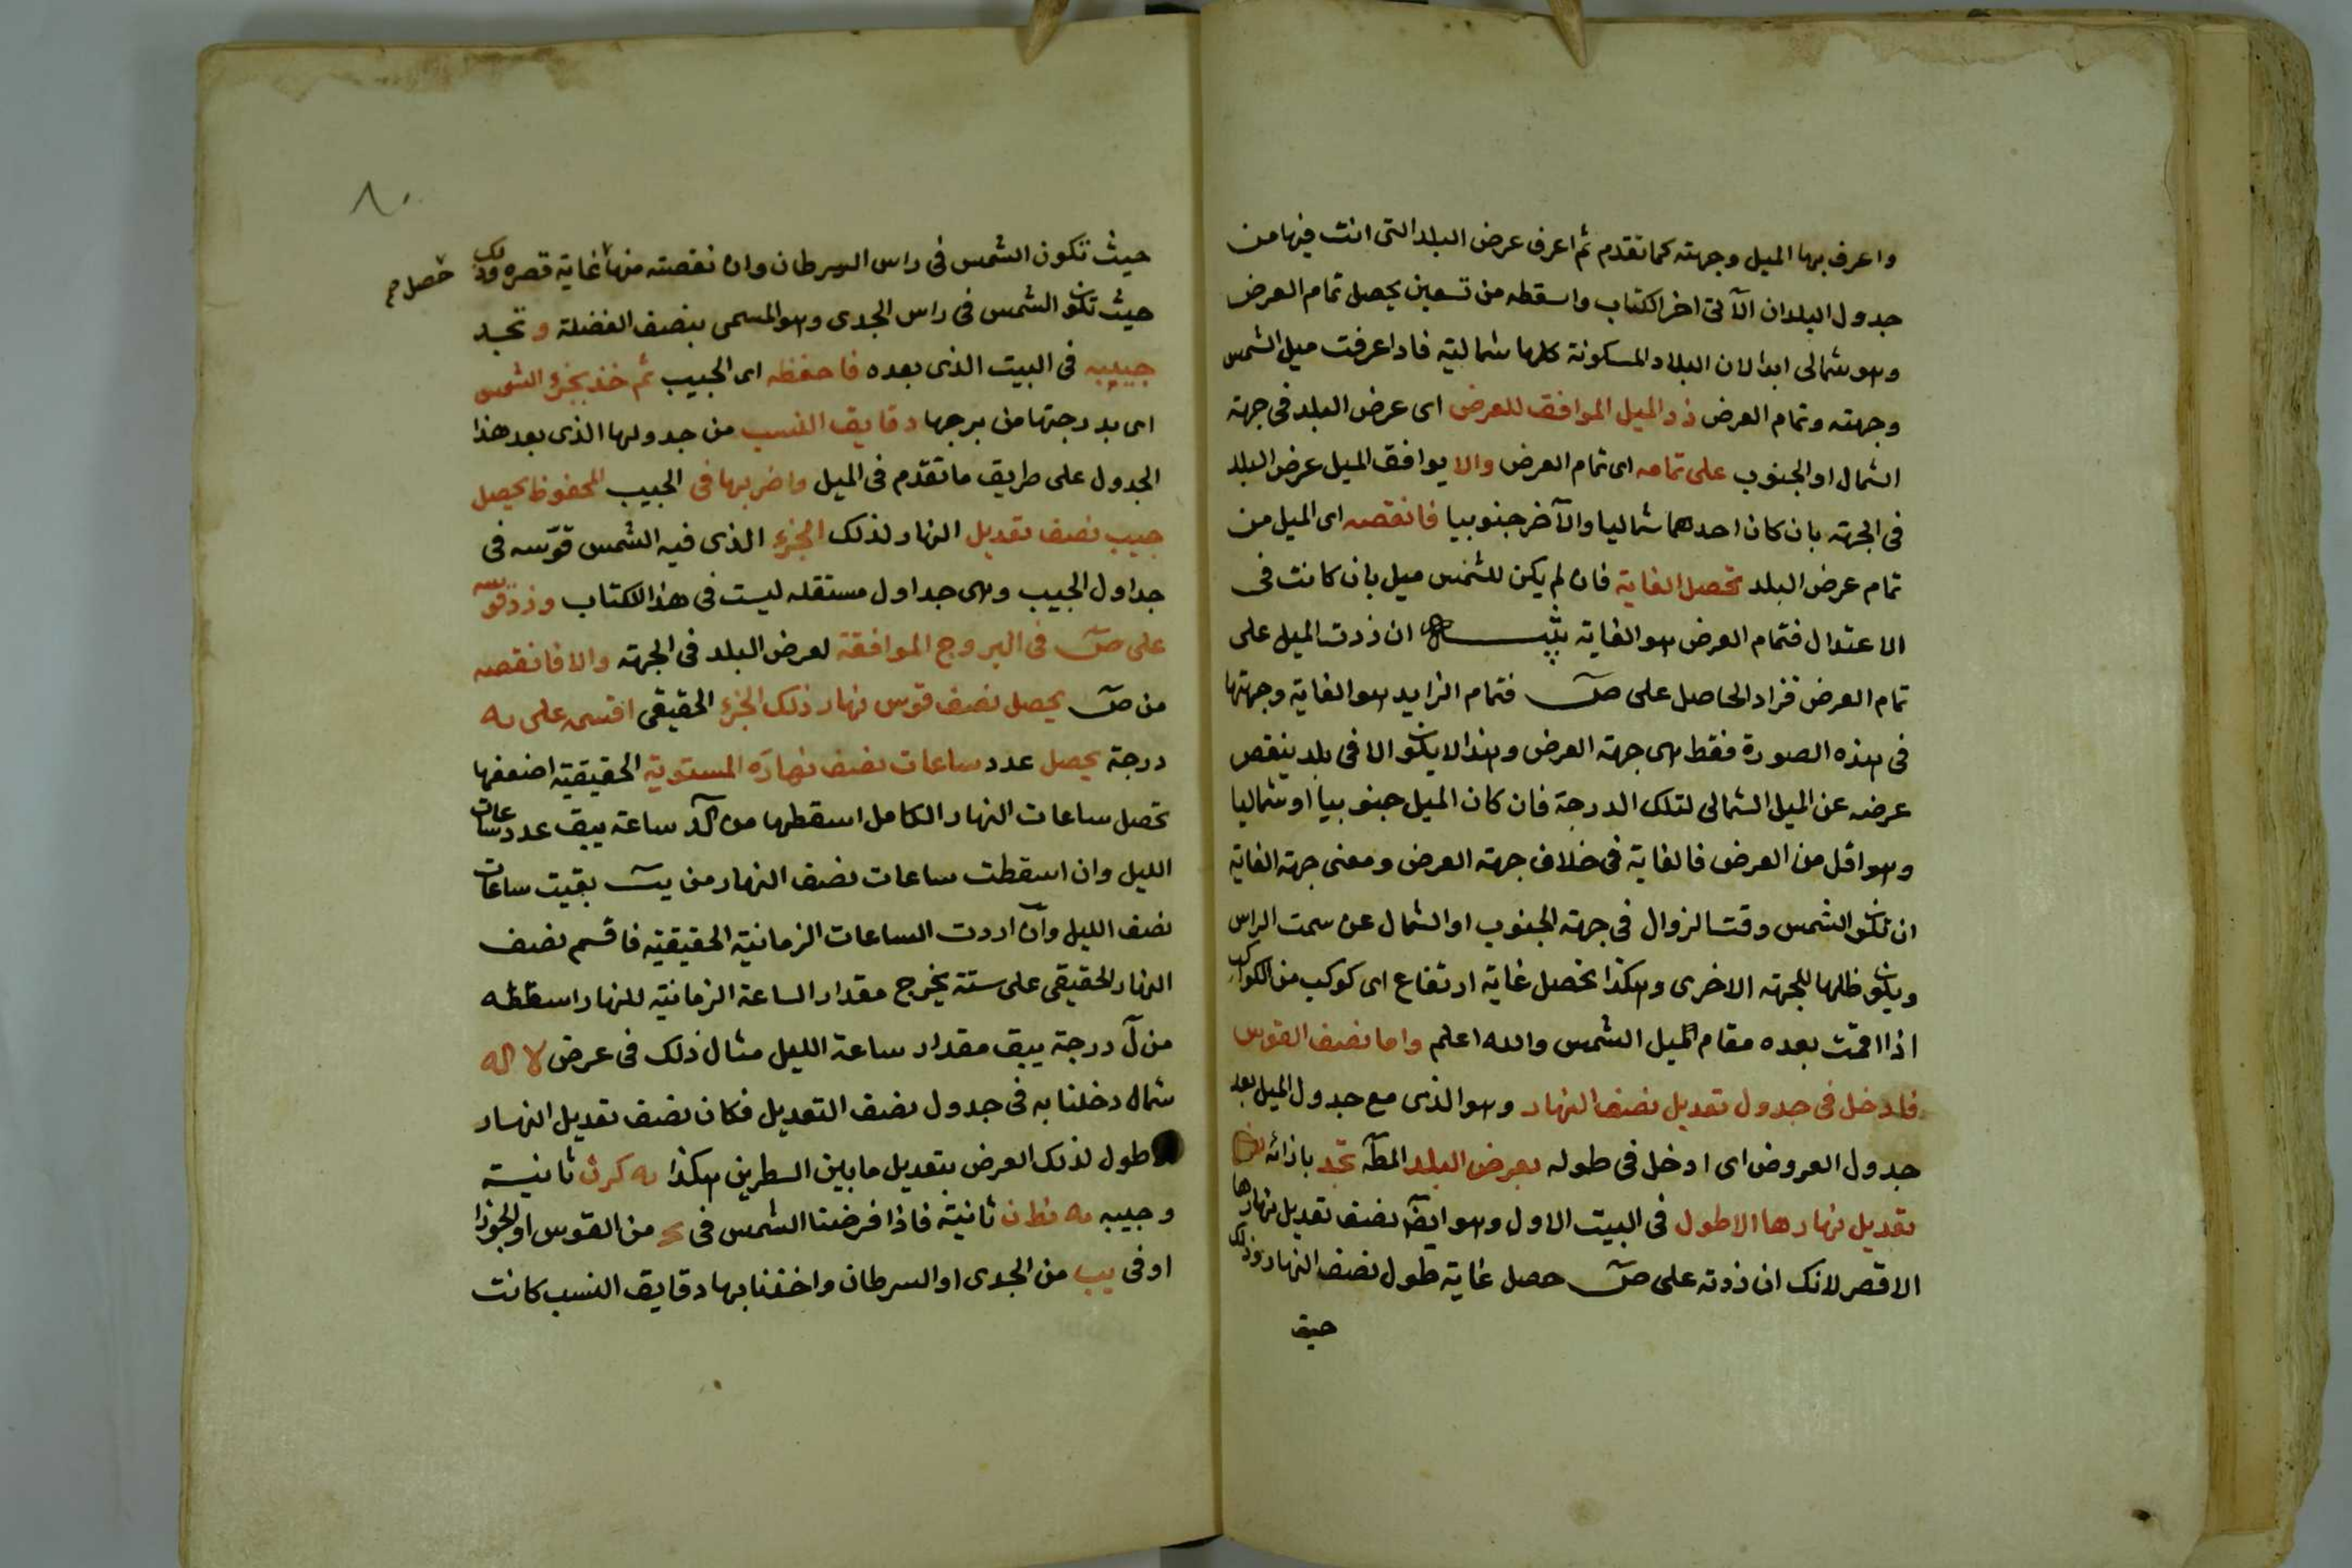 واعرف بها الميل وجهته كما تقدم ثم اعرف عرض البلد التى انت فيها من
جدول البلدان الآتى اخر الكتاب واسقطه من تسعين يحصل تمام العرض
وهو شمالى ابدا لان البلاد المسكونة كلها شمالية فاذا عرفت ميل الشمس
وجهته وتمام العرض زد الميل الموافق للعرض اى عرض البلد فى جهة
الشمال او الجنوب على تمامه اى تمام العرض والا يوافق الميل عرض البلد
فى الجهة بان كان احدهما شماليا والآخر جنوبيا فانقصه اى الميل من
تمام عرض البلد تحصل الغاية فان لم يكن للشمس ميل بان كانت فى
الاعتدال فتمام العرض هو الغاية تنبيه ان زدت الميل على
تمام العرض فزاد الحاصل على ص فتمام الزايد هو الغاية وجهتها
فى هذه الصورة فقط هى جهة العرض وهذا لا يكون الا فى بلد ينقص
عرضه عن الميل الشمالى لتلك الدرجة فان كان الميل جنوبيا او شماليا
وهو اقل من العرض فالغاية فى خلاف جهة العرض ومعنى جهة الغاية
ان تكون الشمس وقت الزوال فى جهة الجنوب او الشمال عن سمت الراس
ويكون ظلها للجهة الاخرى وهكذا تحصل غاية ارتفاع اى كوكب من الكواكب
اذا اقمت بعده مقام الميل الشمس والله اعلم واما نصف القوس
فادخل فى جدول تعديل نصف النهار وهو الذى مع جدول الميل بعد
جدول العروض اى ادخل فى طوله بعرض البلد المط تجد بازائه نصف
تعديل نهارها الاطول فى البيت الاول وهو ايضا نصف تعديل نهارها
الاقصر لانك ان زدته على ص حصل غاية طول نصف النهار وذلك
حيث
٨٠
حيث تكون الشمس فى راس السرطان وان نقصته منها غاية قصره وذلك
حصل صح
حيث تكون الشمس فى راس الجدى وهو المسمى بنصف الفضلة وتجد
جيبه فى البيت الذى بعده فاحفظه اى الجيب ثم خذ بجزء الشمس
اى بدرجتها من برجها دقايق النسب من جدولها الذى بعد هذا
الجدول على طريق ما تقدم فى الميل واضربها فى الجيب المحفوظ يحصل
جيب نصف تعديل النهار لذلك الجزء الذى فيه الشمس قوّسه فى
جداول الجيب وهى جداول مستقله ليست فى هذا الكتاب وزد قوسه
على ص فى البروج الموافقة لعرض البلد فى الجهة والا فانقصه
من ص يحصل نصف قوس نهار ذلك الجزء الحقيقى اقسمه على يه
درجة يحصل عدد ساعات نصف نهاره المستوية الحقيقية اضعفها
تحصل ساعات النهار الكامل اسقطها من كد ساعة يبق عدد ساعات
الليل وان اسقطت ساعات نصف النهار من يب بقيت ساعات
نصف الليل وان اردت الساعات الزمانية الحقيقية فاقسم نصف
النهار الحقيقى على ستة يخرج مقدار الساعة الزمانية للنهار اسقطه
من ل درجة يبق مقدار ساعة الليل مثال ذلك فى عرض لا له
شمال دخلنا به فى جدول نصف التعديل فكان نصف تعديل النهار
الاطول لذلك العرض بتعديل ما بين السطرين هكذا يه كر ن ثانية
وجيبه يه نط ن ثانية فاذا فرضنا الشمس فى يح من القوس او الجوزا
او فى يب من الجدى او السرطان واخذنا بها دقايق النسب كانت